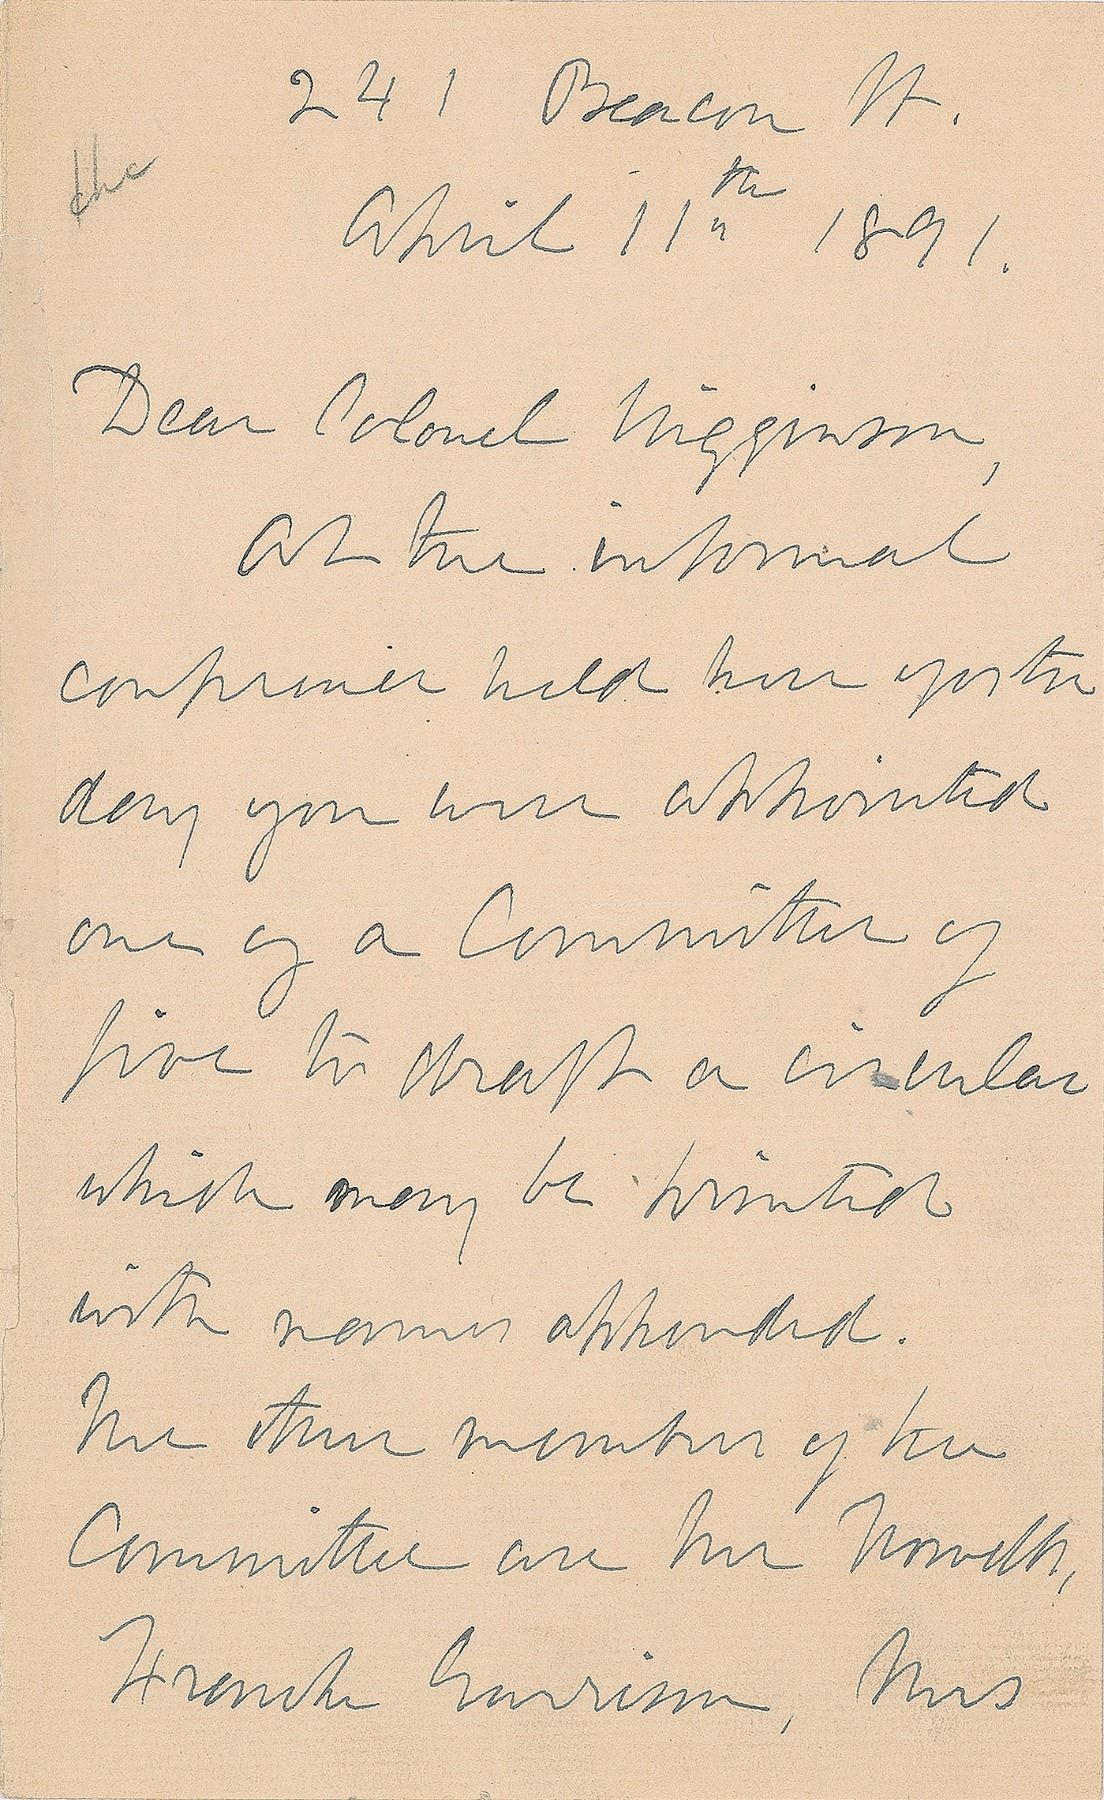 241 Beacon St.
the
April 11th 1891.
Dear Colonel Higginson,
At the informal
conference held here yester
day you were appointed
one of a Committee of
five to draft a circular
which may be printed
with names appended.
The other members of the
Committee are Mr
Frank Garrison, Mrs